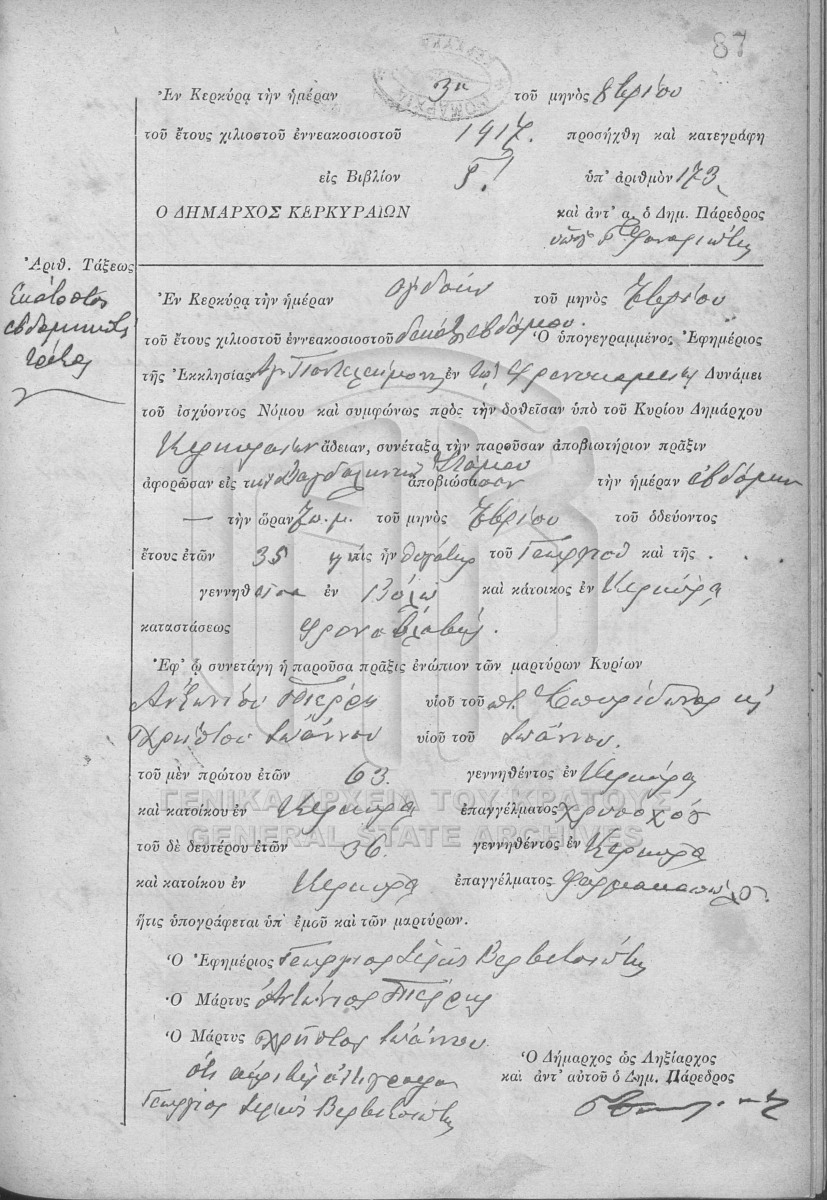 87
Ἐν Κερκύρᾳ τὴν ἡμέραν 3η τοῦ μηνὸς 8βρίου
τοῦ ἔτους χιλιοστοῦ ἐννεακοσιοστοῦ 1917. προσήχθη καὶ κατεγράφη
εἰς Βιβλίον Γ! ὑπ' ἀριθμὸν 173
Ο ΔΗΜΑΡΧΟΣ ΚΕΡΚΥΡΑΙΩΝ καὶ ἀντ' α. ὁ Δημ. Πάρεδρος
Ἀριθ. Τάξεως
Ἑκατοστὸς
ἑβδομηκοστὸς
τρίτος
Ἐν Κερκύρᾳ τὴν ἡμέραν ὀγδόην τοῦ μηνὸς
τοῦ ἔτους χιλιοστοῦ ἐννεακοσιοστοῦ δεκάτου ἑβδόμου. Ὁ ὑπογεγραμμένος Ἐφημέριος
τῆς Ἐκκλησίας Ἁγ. Παντελεήμονος ἐν τῷ Φρενοκομείῳ Δυνάμει
τοῦ ἰσχύοντος Νόμου καὶ συμφώνως πρὸς τὴν δοθεῖσαν ὑπὸ τοῦ Κυρίου Δημάρχου
Κερκυραίων ἄδειαν, συνέταξα τὴν παροῦσαν ἀποβιωτήριον πρᾶξιν
ἀφορῶσαν εἰς τὴν Μαγδαληνὴν ἀποβιώσασαν τὴν ἡμέραν ἑβδόμην
— τὴν ὥραν π.μ. τοῦ μηνὸς τοῦ ὁδεύοντος
ἔτους ἐτῶν 35 ἥτις ἦν θυγάτηρ τοῦ Γεωργίου καὶ τῆς . .
γεννηθεῖσα ἐν Βόλῳ καὶ κάτοικος ἐν Κερκύρᾳ
καταστάσεως Φρενοβλαβής.
Ἐφ' ᾧ συνετάγη ἡ παροῦσα πρᾶξις ἐνώπιον τῶν μαρτύρων Κυρίων
Ἀντωνίου Πιέρρη υἱοῦ τοῦ ποτ. Σπυρίδωνος κ
Χρήστου Ἰωάννου υἱοῦ τοῦ Ἰωάννου.
τοῦ μὲν πρώτου ἐτῶν 63. γεννηθέντος ἐν Κερκύρᾳ
καὶ κατοίκου ἐν Κερκύρᾳ ἐπαγγέλματος χρυσοχόου
τοῦ δὲ δευτέρου ἐτῶν 36. γεννηθέντος ἐν Κερκύρᾳ
καὶ κατοίκου ἐν Κερκύρᾳ ἐπαγγέλματος φαρμακοποιοῦ.
ἥτις ὑπογράφεται ὑπ' ἐμοῦ καὶ τῶν μαρτύρων.
Ὁ Ἐφημέριος Γεώργιος Ἱερεὺς Βερβιτσιώτης
Ὁ Μάρτυς Ἀντώνιος Πιέρρης
Ὁ Μάρτυς Χρῆστος Ἰωάννου
Ὅτι ἀκριβὲς ἀντίγραφον
Γεώργιος Ἱερεὺς Βερβιτσιώτης
Ὁ Δήμαρχος ὡς Ληξίαρχος
καὶ ἀντ' αὐτοῦ ὁ Δημ. Πάρεδρος
ΓΕΝΙΚΑ ΑΡΧΕΙΑ ΤΟΥ ΚΡΑΤΟΥΣ
GENERAL STATE ARCHIVES